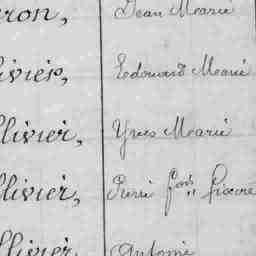 ron, Jean Marie
ivier, Edouard Marie
llivier, Yves Marie
llivier, Pierre fois Fiacre
llivier Antoni